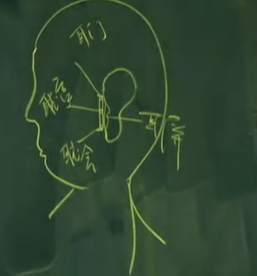 耳门
听宫
听会
耳屏